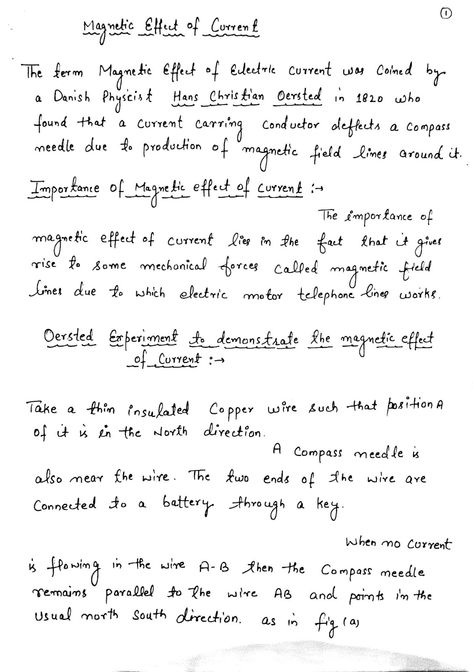 ①
Magnetic Effect of Current
The term Magnetic Effect of Eelectric Current was Coined by
a Danish Physicist Hans Christian Oersted in 1820 who
found that a current carring conductor deffects a compass
needle due to production of magnetic field lines around it.
Importance of Magnetic effect of Current :→
The importance of
magnetic effect of current lies in the fact that it gives
rise to some mechonical forces called magnetic field
lines due to which electric motor telephone lines works.
Oersted Experiment to demonstrate the magnetic effect
of Current :→
Take a thin insulated Copper wire such that position A
of it is in the North direction.
A Compass needle is
also near the wire. The two ends of the wire are
Connected to a battery through a key.
When no Current
is flowing in the wire A-B then the Compass needle
remains parallel to the wire AB and points in the
usual north South direction. as in fig (a)